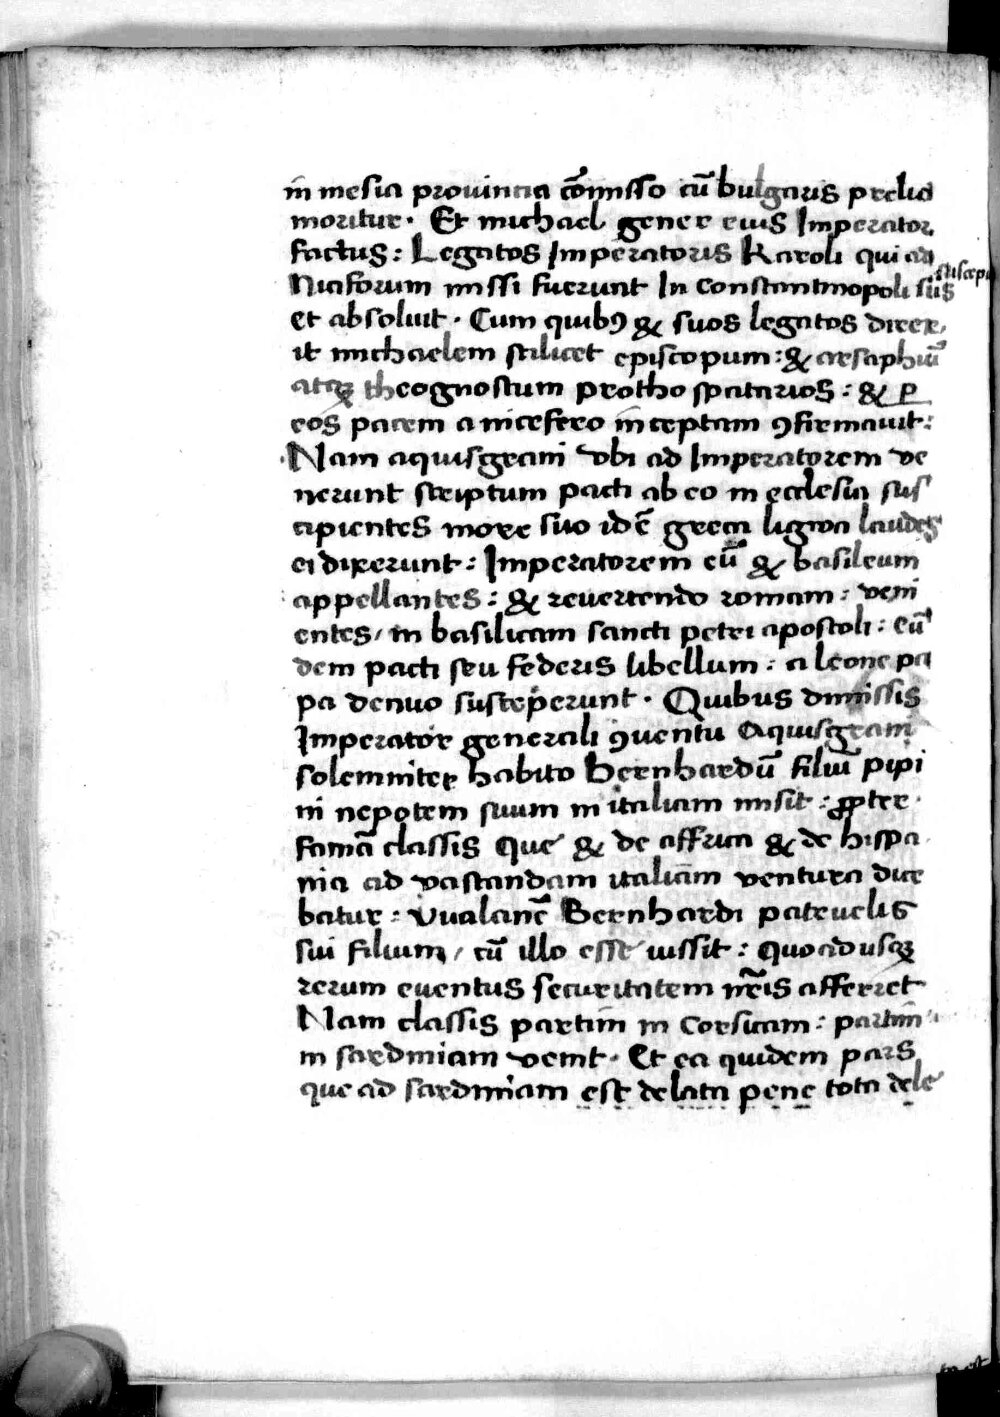 in mesia prouincia cōmisso cū bulgaris prelio
moritur. Et michael gener eius Imperator
factus: Legatos Imperatoris Karoli qui ad
suscepi
Niciforum missi fuerunt In constantinopoli sus
et absoluit. Cum quibꝰ & suos legatos direx,
it michaelem scilicet episcopum: & arsaphiū
atqꝫ theognostum protho spatarios: & ꝑ
eos pacem a nicefero inceptam ꝯfirmauit:
Nam aquisgrani vbi ad Imperatorem ve
nerunt scriptum pacti ab eo in ecclesia sus
cipientes more suo id ē greca ligwa laudes
ei dixerunt: Imperatorem eū & basileum
appellantes: & reuertendo romam: veni
entes/ in basilicam sancti petri apostoli: eū
dem pacti seu federis libellum: a leone pa
pa denuo susceperunt. Quibus dimissis
Imperator generali ꝯuentu Aquisgrani
solemniter habito Bernhardū filiū pipi
ni nepotem suum in italiam misit: ꝓpter
famā classis Que & de affrica & de hispa
nia ad vastandam italiam ventura dice
batur: Vualanē Bernhardi patruelis
sui filium/ cū illo esse iussit: Quoadusqꝫ
rerum euentus securitatem nr̄is afferret
Nam classis partim in Corsicam: partim
in sardiniam venit. Et ea quidem pars
que ad sardiniam est delata pene tota dele